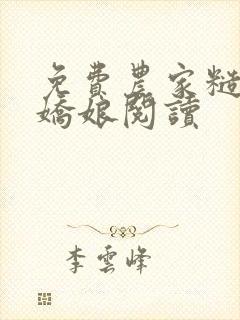 免費農家糙
嬌娘閱讀
李雲峰